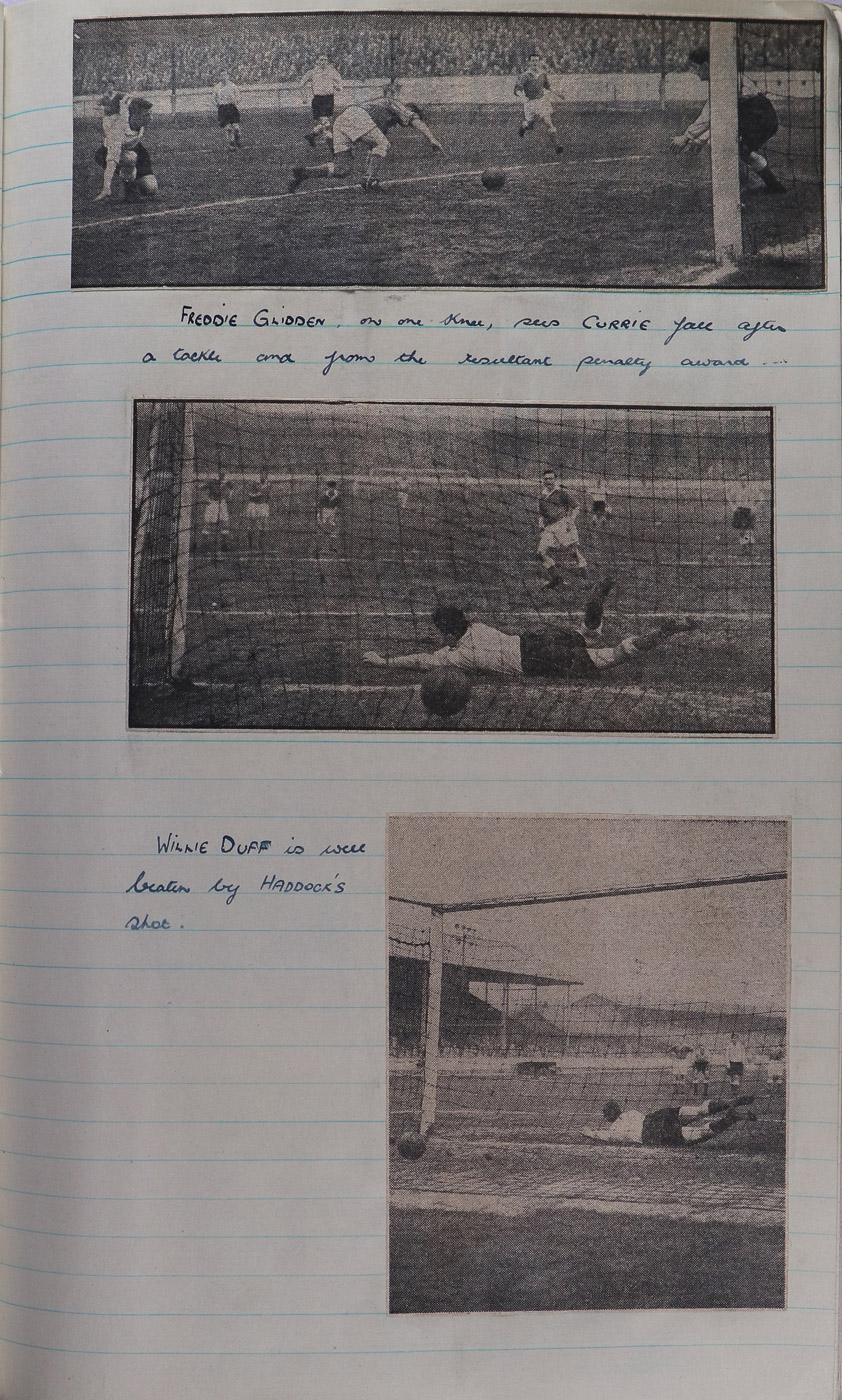 FREDDIE GLIDDEN, on one knee, sees CURRIE fall after
a tackle and from the resultant penalty award ....
WILLIE DUFF is well
beaten by HADDOCK'S
shot.